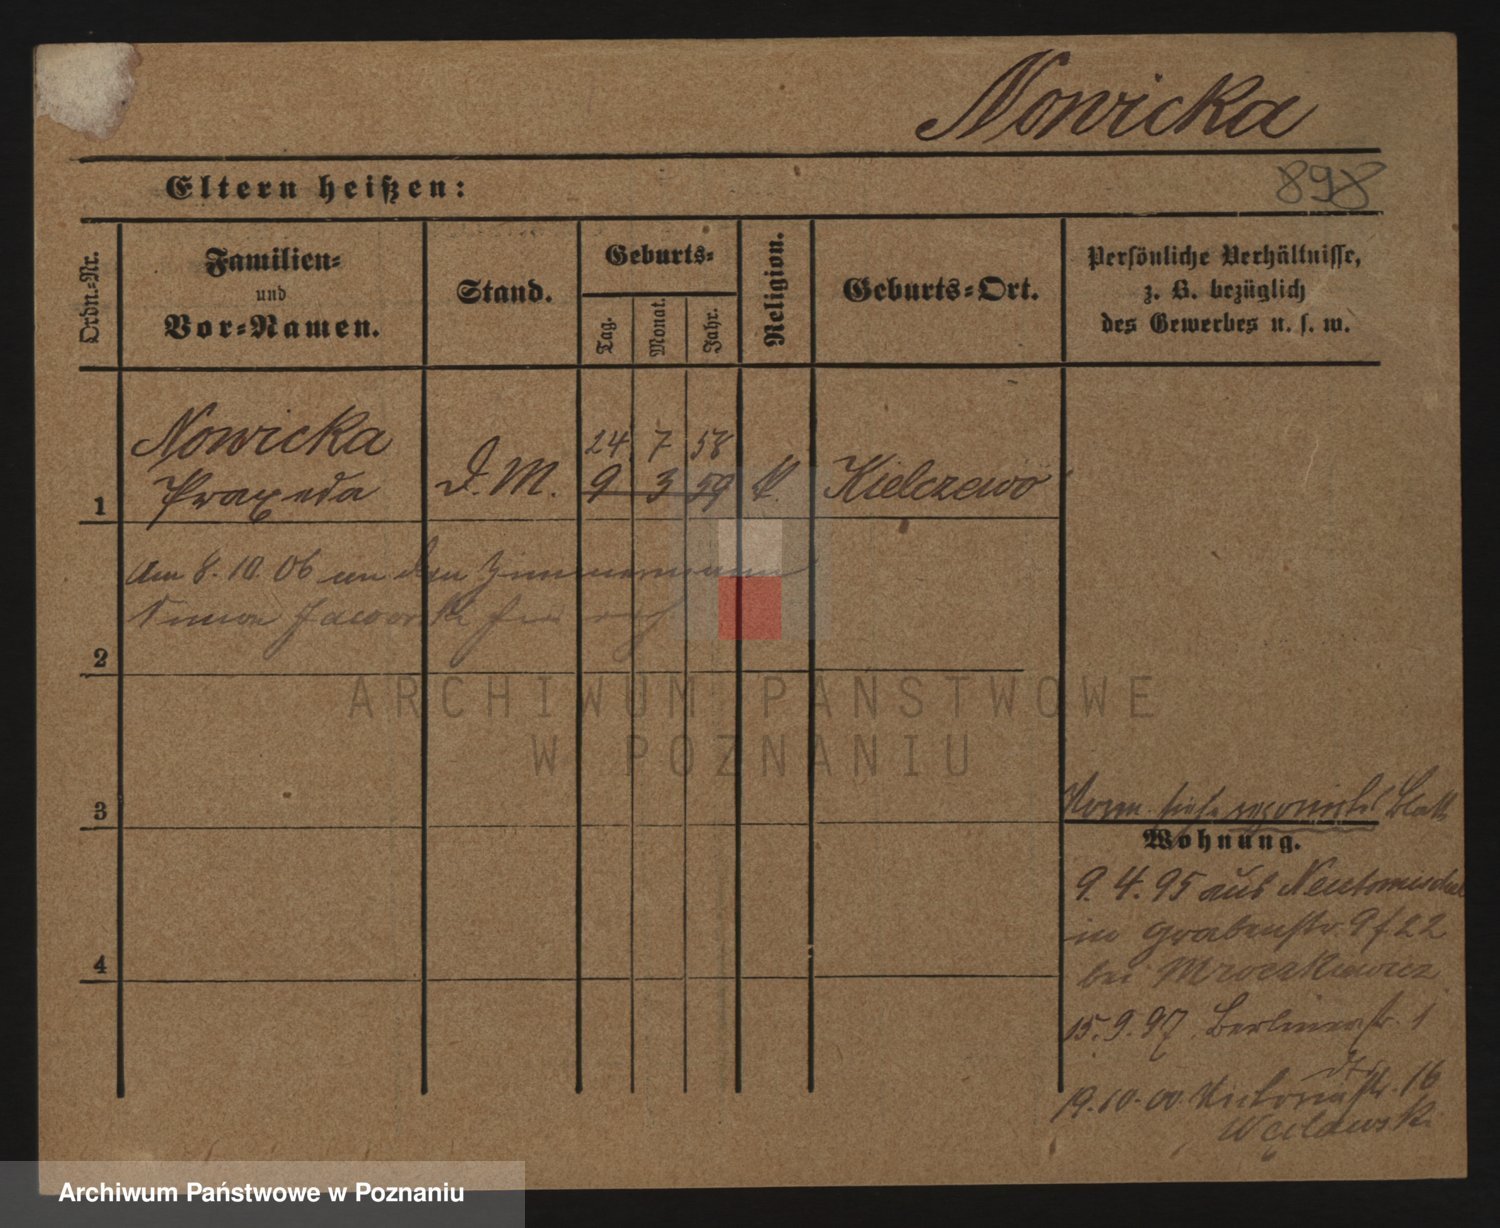 Nowicka
898
Eltern heißen:
Ordn.-Nr.
Familien-
und
Vor-Namen.
Stand.
Geburts-
Tag.
Monat.
Jahr.
Religion.
Geburts-Ort.
Persönliche Verhältnisse,
z. B. bezüglich
des Gewerbes u. s. w.
Nowicka
24 7 58
1 Praxeda D. M. 9 3 59 k. Kielczewo
Am 8. 10. 06 an den Zimmermann
Simon
2
ARCHIWUM PAŃSTWOWE
W POZNANIU
3
siehe Blatt
Wohnung.
9. 4. 95 aus Neutomischel
in Grabenstr. 9 f 22
4
bei Mroczkiewicz
15. 9. 97. Berlinerstr. 1
19. 10. 00 Victoriastr. 16
Węclawski
Archiwum Państwowe w Poznaniu